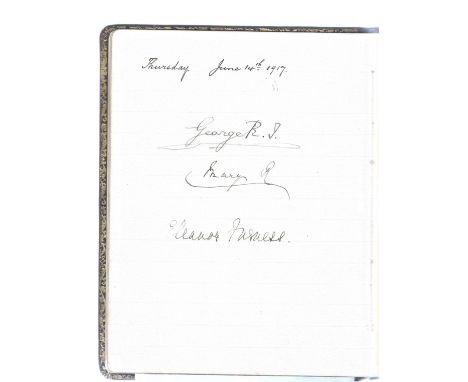 Thursday June 14th 1917.
George R. I.
Mary R
Eleanor Furness.